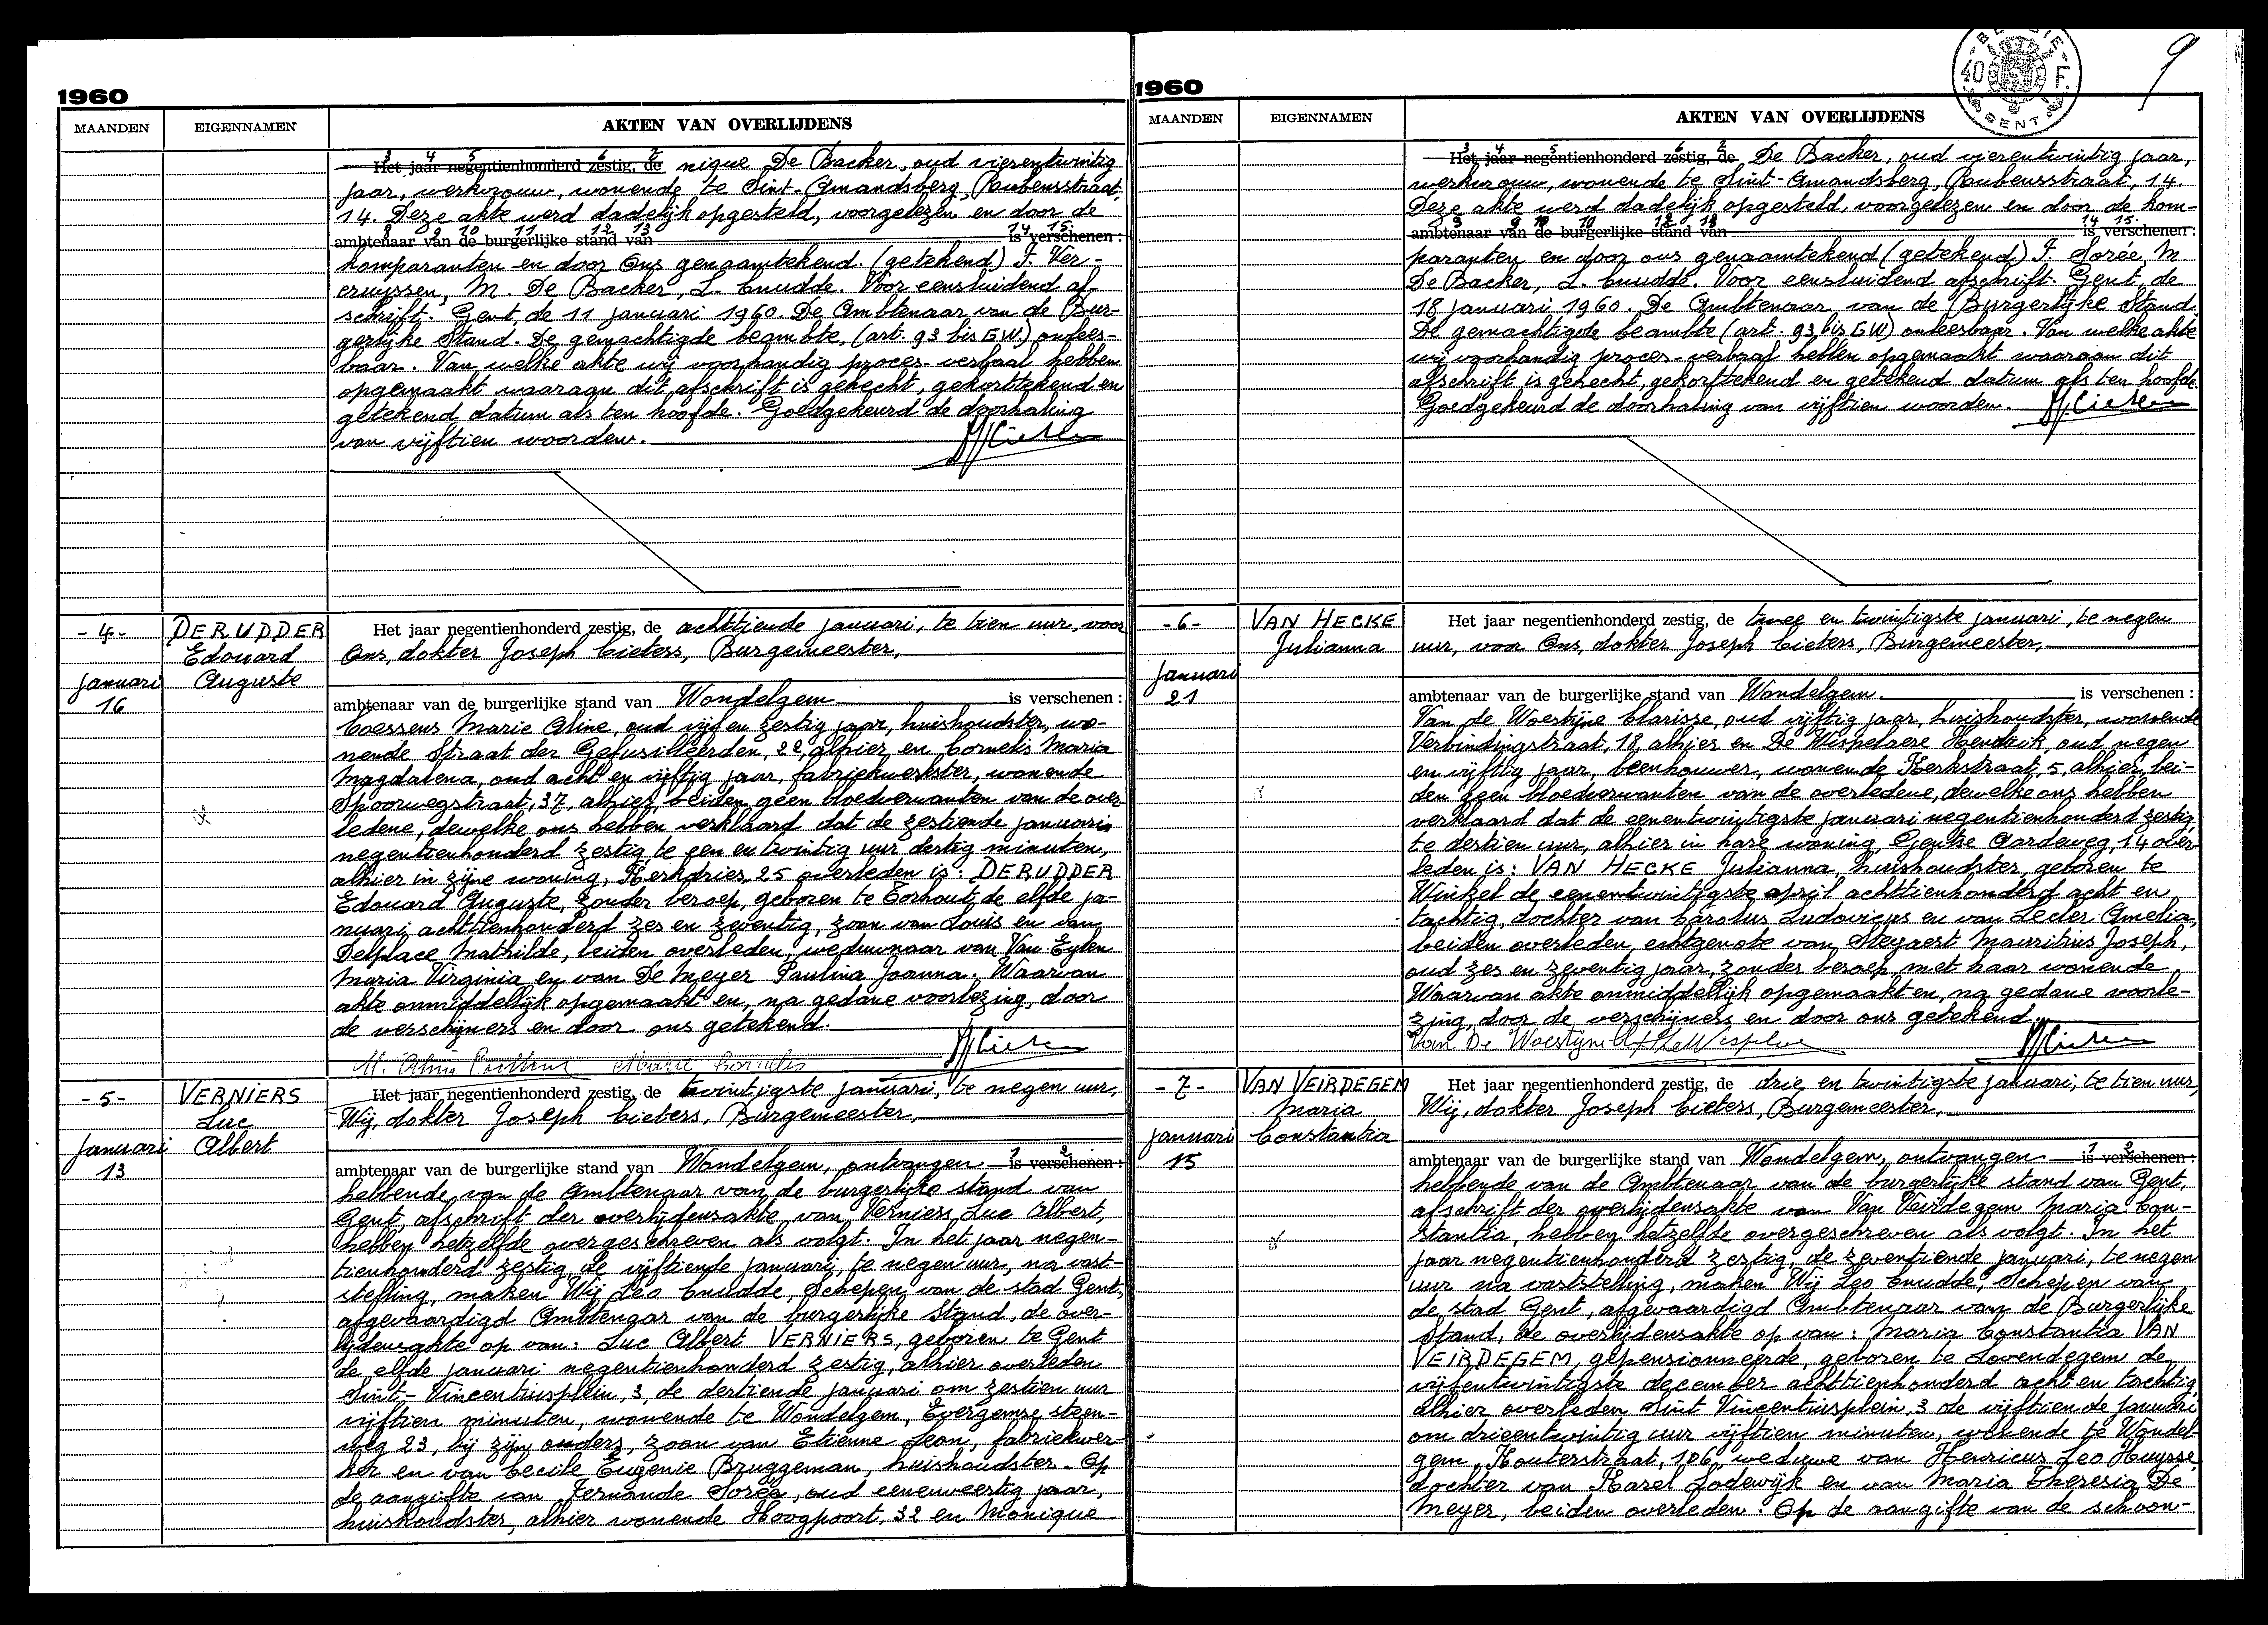 1960
MAANDEN EIGENNAMEN AKTEN VAN OVERLIJDENS
3 4 5 6 7
Het jaar negentienhonderd zestig, de nique De Backer, oud vierentwintig
jaar, werkvrouw, wonende te Sint-Amandsberg, Rubensstraat,
14. Deze akte werd dadelijk opgesteld, voorgelezen en door de
8 9 10 11 12 13 14 15.
ambtenaar van de burgerlijke stand van is verschenen :
komparanten en door Ons genaamtekend. (getekend) F. Ver-
cruyssen, M. De Backer, L. Cnudde. Voor eensluidend af-
schrift. Gent, de 11 januari 1960. De Ambtenaar van de Bur-
gerlijke Stand. De gemachtigde beambte, (art. 93 bis G.W.) onlees-
baar. Van welke akte wij voorhandig proces-verbaal hebben
opgemaakt waaraan dit afschrift is gehecht, gekorttekend en
getekend datum als ten hoofde. Goedgekeurd de doorhaling
van vijftien woorden.
-4- DERUDDER Edouard Auguste
Januari 16
Het jaar negentienhonderd zestig, de achttiende januari, te tien uur, voor
Ons, dokter Joseph Cieters, Burgemeester,
ambtenaar van de burgerlijke stand van Wondelgem is verschenen :
Coessens Marie Aline, oud vijf en zestig jaar, huishoudster, wo-
nende Straat der Gefusilleerden, 22, alhier en Cornelis Maria
Magdalena, oud acht en vijftig jaar, fabriekwerkster, wonende
Spoorwegstraat, 37, alhier, beiden geen bloedverwanten van de over-
ledene, dewelke ons hebben verklaard dat de zestiende januari
negentienhonderd zestig te een en twintig uur dertig minuten,
alhier in zijne woning, Kerkdries, 25 overleden is: DERUDDER
Edouard Auguste, zonder beroep, geboren te Torhout, de elfde ja-
nuari achttienhonderd zes en zeventig, zoon van Louis en van
Delplace Mathilde, beiden overleden, weduwnaar van Van Eylen
Maria Virginia en van De Meyer Paulina Joanna. Waarvan
akte onmiddellijk opgemaakt en, na gedane voorlezing, door
de verschijners en door ons getekend.
-5- VERNIERS Luc Albert
Januari 13
Het jaar negentienhonderd zestig, de twintigste januari, te negen uur,
Wij, dokter Joseph Cieters, Burgemeester,
1 2
ambtenaar van de burgerlijke stand van Wondelgem, ontvangen is verschenen :
hebbende van de Ambtenaar van de burgerlijke stand van
Gent, afschrift der overlijdensakte van Verniers Luc Albert,
hebben hetzelfde overgeschreven als volgt. In het jaar negen-
tienhonderd zestig, de vijftiende januari, te negen uur, na vast-
stelling, maken Wij Leo Cnudde, Schepen van de stad Gent,
afgevaardigd Ambtenaar van de burgerlijke Stand, de over-
lijdensakte op van: Luc Albert VERNIERS, geboren te Gent
de elfde januari negentienhonderd zestig, alhier overleden
Sint-Vincentiusplein, 3, de dertiende januari om zestien uur
vijftien minuten, wonende te Wondelgem, Evergemse steen-
weg 23, bij zijn ouders, zoon van Etienne Leon, fabriekwer-
ker en van Cecile Eugenie Bruggeman, huishoudster. Op
de aangifte van Fernande Sorée, oud eenenveertig jaar,
huishoudster, alhier wonende Hoogpoort, 32 en Monique
1960
BELGIE 40 F. GENT
9
MAANDEN EIGENNAMEN AKTEN VAN OVERLIJDENS
3 4 5 6 7
Het jaar negentienhonderd zestig, de De Backer, oud vierentwintig jaar,
werkvrouw, wonende te Sint-Amandsberg, Rubensstraat, 14.
Deze akte werd dadelijk opgesteld, voorgelezen en door de kom-
ambtenaar van de burgerlijke stand van is verschenen :
paranten en door ons genaamtekend (getekend) F. Sorée, M.
De Backer, L. Cnudde. Voor eensluidend afschrift. Gent, de
18 januari 1960. De Ambtenaar van de Burgerlijke Stand.
De gemachtigde beambte (art. 93 bis G.W.) onleesbaar. Van welke akte
wij voorhandig proces-verbaal hebben opgemaakt waaraan dit
afschrift is gehecht, gekorttekend en getekend datum als ten hoofde.
Goedgekeurd de doorhaling van vijftien woorden.
-6- VAN HECKE Julianna
Januari 21
Het jaar negentienhonderd zestig, de twee en twintigste januari, te negen
uur, voor Ons, dokter Joseph Cieters, Burgemeester,
ambtenaar van de burgerlijke stand van Wondelgem. is verschenen :
Van de Woestijne Clarisse, oud vijftig jaar, huishoudster, wonende
Verbindingstraat, 18, alhier en De Wispelaere Hendrik, oud negen
en vijftig jaar, beenhouwer, wonende Kerkstraat, 5, alhier, bei-
den geen bloedverwanten van de overledene, dewelke ons hebben
verklaard dat de eenentwintigste januari negentienhonderd zestig,
te dertien uur, alhier in hare woning, Gentse Aardeweg, 14 over-
leden is: VAN HECKE Julianna, huishoudster, geboren te
Winkel de eenentwintigste april achttienhonderd acht en
tachtig, dochter van Carolus Ludovicus en van Lecler Amelia,
beiden overleden, echtgenote van Steyaert Mauritius Joseph,
oud zes en zeventig jaar, zonder beroep, met haar wonende.
Waarvan akte onmiddellijk opgemaakt en, na gedane voorle-
zing, door de verschijners en door ons getekend.
Van De Woestijne
-7- VAN VEIRDEGEM Maria Constantia
Januari 15
Het jaar negentienhonderd zestig, de drie en twintigste januari, te tien uur,
Wij, dokter Joseph Cieters, Burgemeester,
1 2
ambtenaar van de burgerlijke stand van Wondelgem, ontvangen is verschenen :
hebbende van de Ambtenaar van de burgerlijke stand van Gent,
afschrift der overlijdensakte van Van Veirdegem Maria Con-
stantia, hebben hetzelfde overgeschreven als volgt. In het
jaar negentienhonderd zestig, de zeventiende januari, te negen
uur na vaststelling, maken Wij Leo Cnudde, Schepen van
de stad Gent, afgevaardigd Ambtenaar van de Burgerlijke
Stand, de overlijdensakte op van: Maria Constantia VAN
VEIRDEGEM, gepensionneerde, geboren te Lovendegem de
vijfentwintigste december achttienhonderd acht en tachtig,
alhier overleden Sint Vincentiusplein, 3 de vijftiende januari
om drieentwintig uur vijftien minuten, wonende te Wondel-
gem, Houterstraat, 106, weduwe van Henricus Leo Huysse,
dochter van Karel Lodewijk en van Maria Theresia De
Meyer, beiden overleden. Op de aangifte van de schoon-